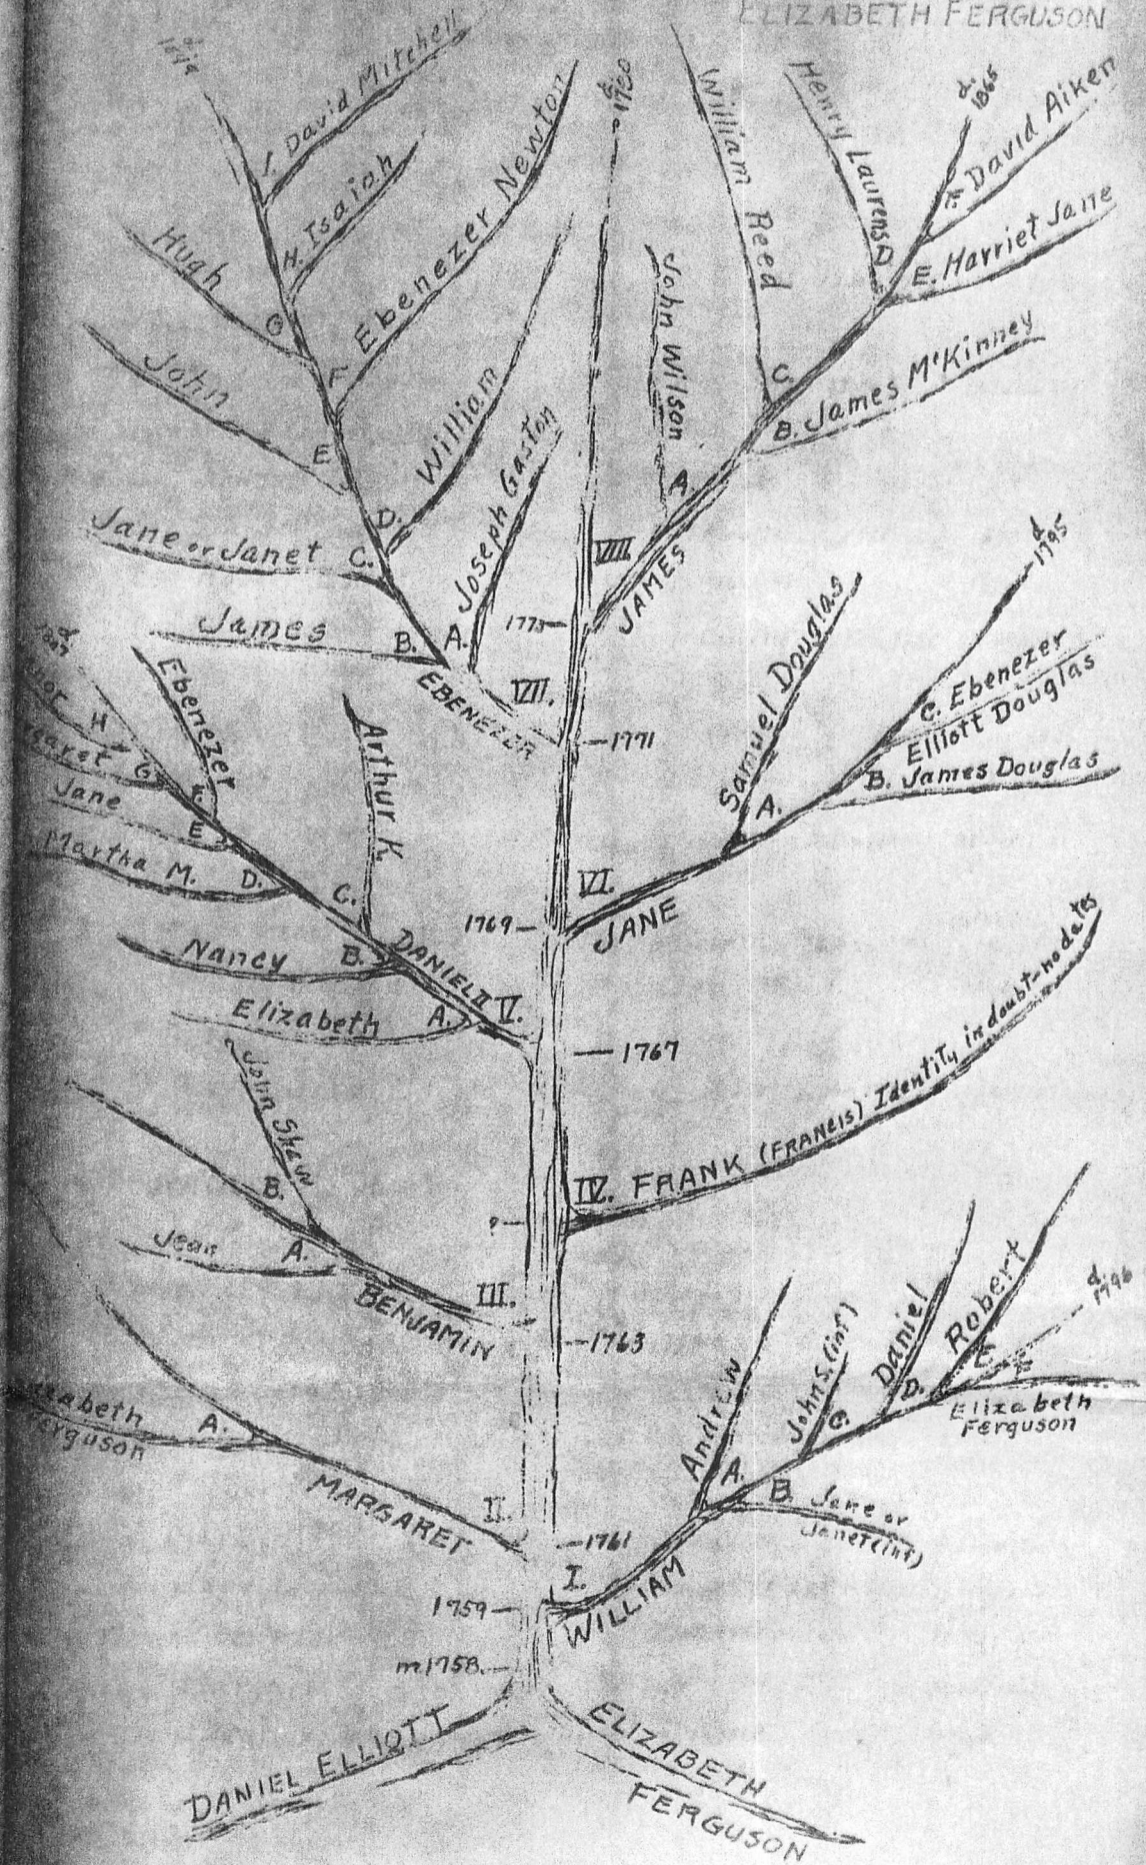 ELIZABETH FERGUSON
I. David Mitchell
H. Isaiah
Hugh
G
F Ebenezer Newton
John
E
D. William
Jane or Janet C.
James B.
A. Joseph Gaston
EBENEZER
VII.
William Reed
C.
Henry Laurens D
d. 1865
F. David Aiken
E. Harriet Jane
B. James McKinney
John Wilson
A.
VIII
JAMES
1773
1771
d 1795
Samuel Douglas
A.
C. Ebenezer
Elliott Douglas
B. James Douglas
VI.
JANE
1769
H
G
Ebenezer
F.
Jane
E
Martha M. D.
Arthur K.
C.
Nancy B.
Elizabeth A.
DANIEL II V.
1767
IV. FRANK (FRANCIS) Identity in doubt-no dates
?
John Shaw
B.
Jean A.
BENJAMIN
III.
1763
A.
MARGARET
II.
1761
Andrew
A.
John S. (inf)
C.
Daniel
D.
Robert
E
d. 1796
F
Elizabeth
Ferguson
B. Jane or
Janet (inf)
I.
WILLIAM
1759
m.1758.
DANIEL ELLIOTT
ELIZABETH
FERGUSON